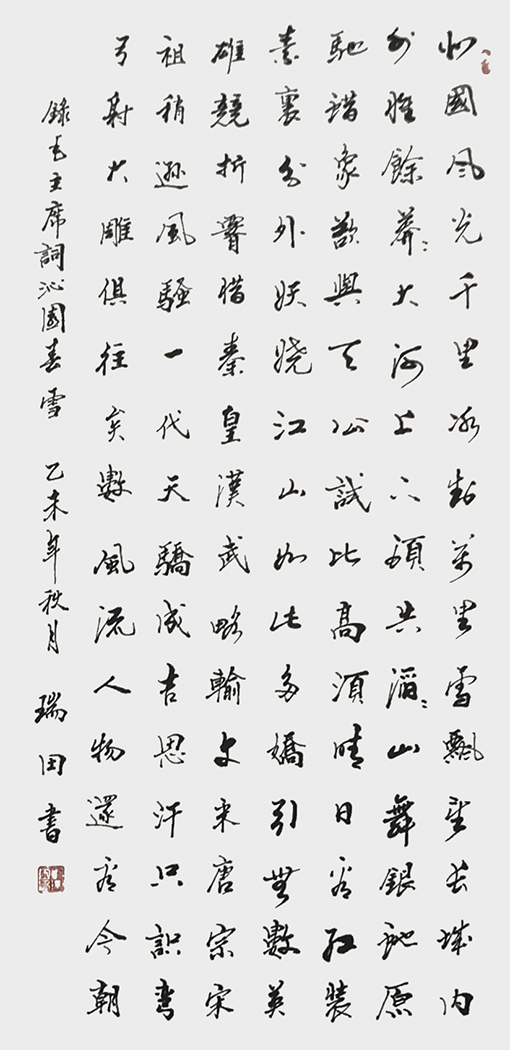 北國風光千里冰封萬里雪飄望長城内
外惟餘莽〻大河上下頓失滔〻山舞銀蛇原
馳蜡象欲與天公試比高須晴日看紅裝
素裹分外妖嬈江山如此多嬌引無數英
雄競折腰惜秦皇漢武略輸文采唐宗宋
祖稍遜風騷一代天驕成吉思汗只識彎
弓射大雕俱往矣數風流人物還看今朝
錄毛主席詞沁園春雪 乙未年秋月 瑞田書